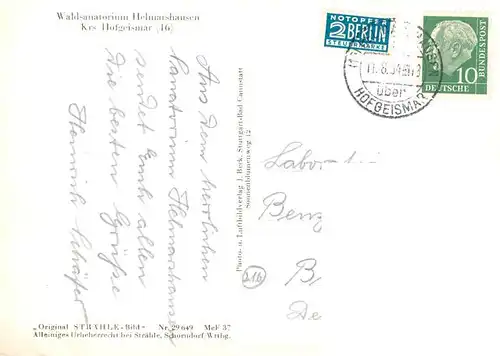 Waldsanatorium Helmarshausen
Krs Hofgeismar (16)
Aus dem herrlichen
Sanatorium Helmarshausen
sendet Euch allen
die besten Grüße
Heinrich Schäfer
„Original STRÄHLE-Bild“ Nr. 29649 MeF 37
Alleiniges Urheberrecht bei Strähle, Schorndorf Wrttbg.
Photo- u. Luftbildverlag J. Beck, Stuttgart/Bad Cannstatt
Sonnenblumenweg 12
NOTOPFER
2 BERLIN
STEUERMARKE
11.6.54
über
HOFGEISMAR
DEUTSCHE
BUNDESPOST
10
Labor
Benz
B
De
216